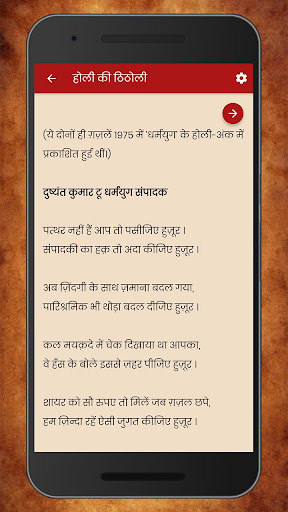 होली की ठिठोली
(ये दोनों ही ग़ज़लें 1975 में 'धर्मयुग' के होली-अंक में
प्रकाशित हुई थीं।)
दुष्यंत कुमार टू धर्मयुग संपादक
पत्थर नहीं हैं आप तो पसीजिए हुज़ूर ।
संपादकी का हक़ तो अदा कीजिए हुज़ूर ।
अब ज़िंदगी के साथ ज़माना बदल गया,
पारिश्रमिक भी थोड़ा बदल दीजिए हुज़ूर ।
कल मयक़दे में चेक दिखाया था आपका,
वे हँस के बोले इससे ज़हर पीजिए हुज़ूर ।
शायर को सौ रुपए तो मिलें जब ग़ज़ल छपे,
हम ज़िन्दा रहें ऐसी जुगत कीजिए हुज़ूर ।